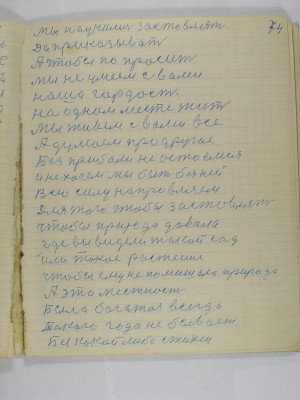 74
мы научили заставлят
да приказывать
А чтоби по просит
мы не умеем с вами
наша гордост
на одном месте жит
мы живем с вами все
А думаем при другое
Без прибали не остоемся
и не хочем мы быт бедней
Всю силу напровляем
Для того чтобы заставлят
чтобы природа довала
где вы видели такой сад
или такое растение
чтобы ему не помишала природа
А эта местност
Была богатая всегда
такого года не бывает
Без какой либо стихеи